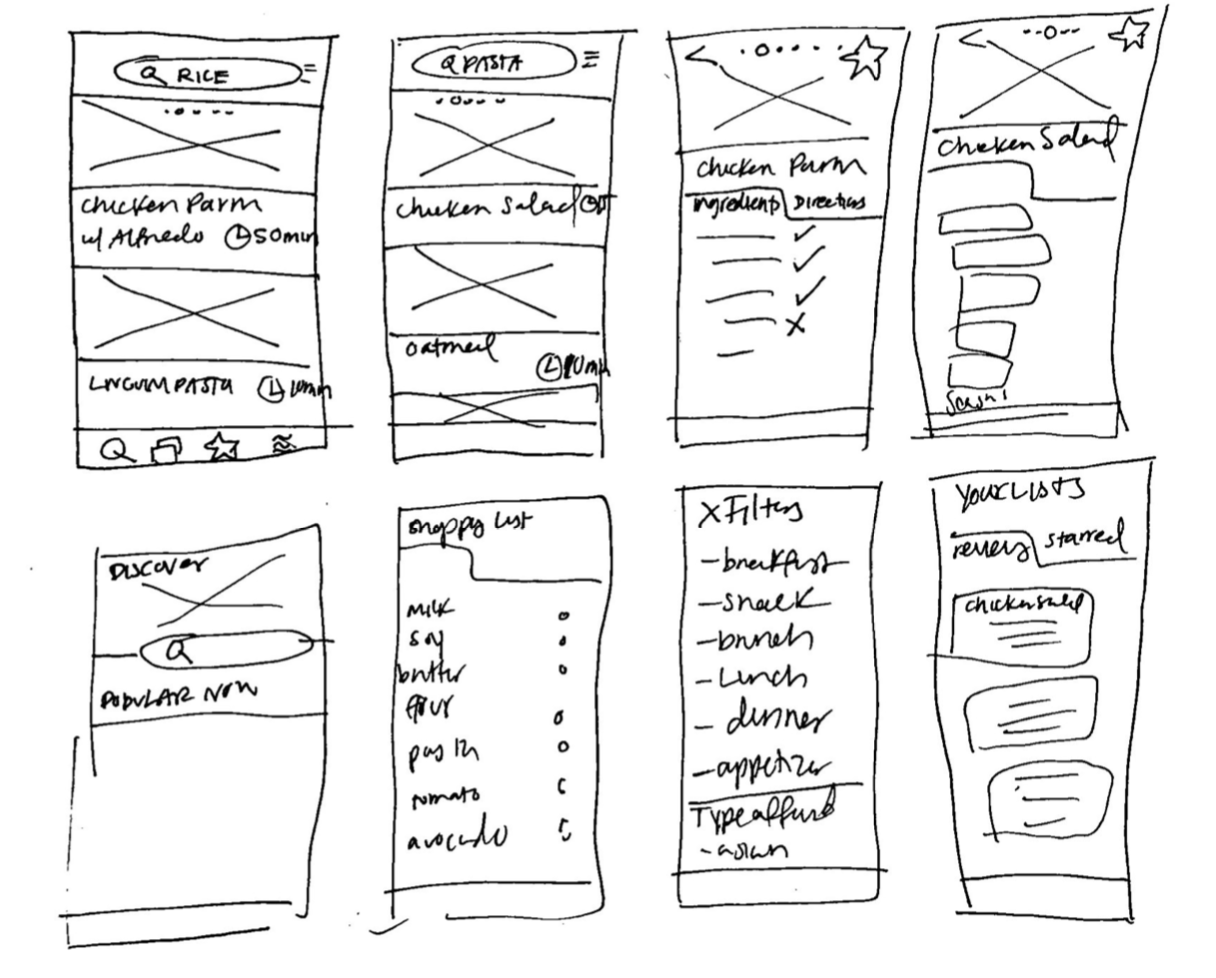 RICE
chicken Parm
w/ Alfredo 50min
PASTA
chicken Salad
oatmeal
10min
chicken Parm
ingredients Directions
chicken Salad
DISCOVER
POPULAR NOW
shoppg list
MILK
soy
butter
flour
tomato
avocado
X Filters
- breakfast
- snack
- brunch
- Lunch
- dinner
- appetizer
Type of food
- asian
YOUR LISTS
starred
chicken salad